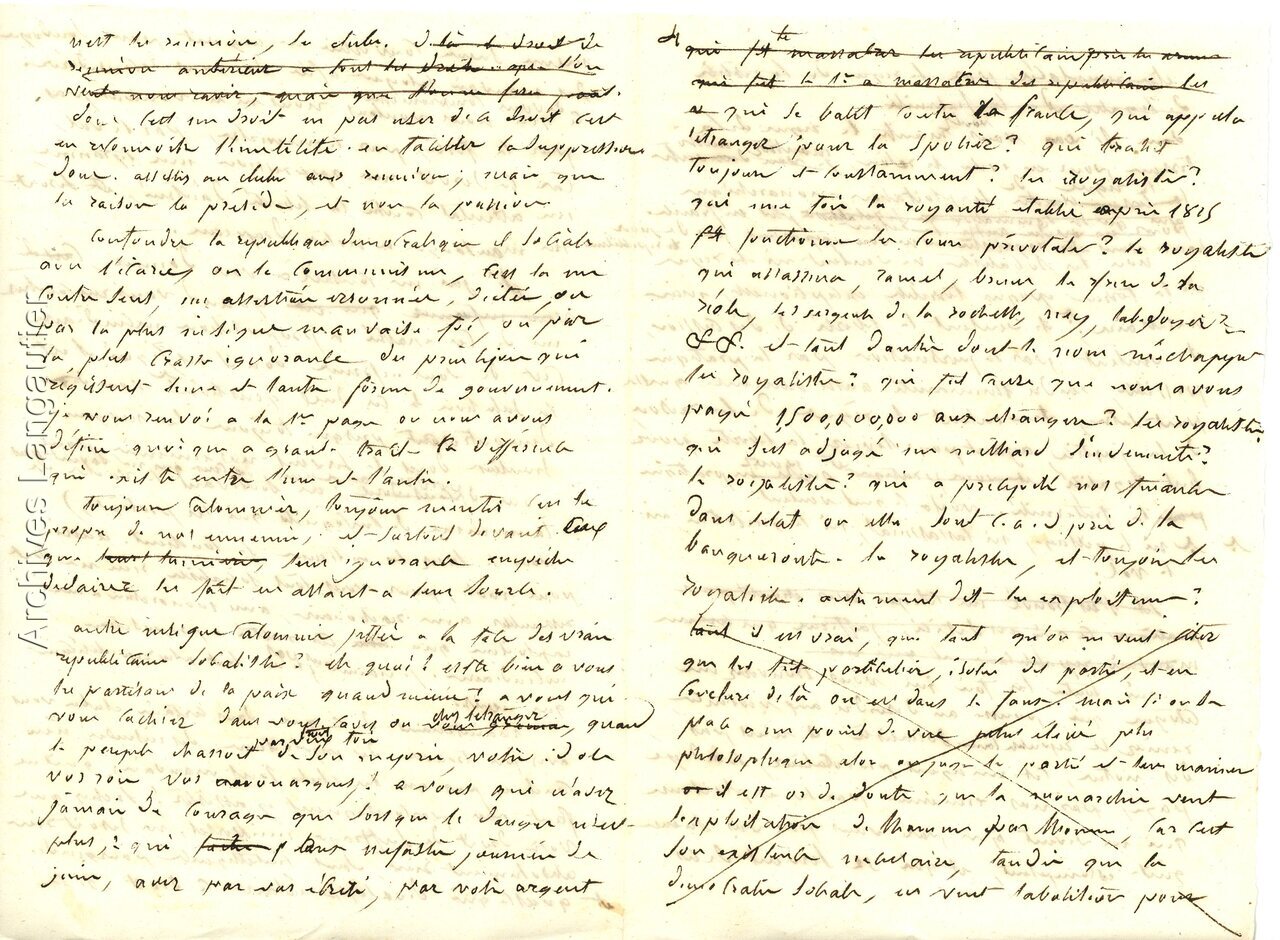 la reunion, le clubs. le droit de
reunion anterieur a tout les droits que l'on
veut nous ravir, quoi que l'homme
donc c'est un droit en pas user de ce droit c'est
en reconnoitre l'inutilité en faciliter la suppression
donc. assistés au clubs aux reunion; mais que
la raison la préside, et non la passion
confondre la republique democratique et sociale
avec l'icarien ou le communisme, c'est la un
contre sens, une assertion erronnée, dictée, ou
par la plus insigne mauvaise foi, ou par
la plus crasse ignorance des principes qui
regissent l'une et l'autre forme de gouvernement.
je vous renvoi a la 1re page ou nous avons
définie quoique a grands traits la difference
qui existe entre l'une et l'autre.
toujours calomnier, toujours mentir c'est le
propre de nos ennemis, et surtout devant ceux
que leur ignorance empeche
d'eclaircir les fait en allant a leur source.
autre insigne calomnie jettée a la face des vrais
republicains socialistes? eh quoi! est-ce bien a vous
les partisans de la paix quand meme! a vous qui
vous cachiez dans vos caves ou chez l'etranger, quand
le peuple chassoit de son mepris, votre idole
vos rois vos monarques! a vous qui n'avez
jamais de courage que lorsque le danger n'est
plus, a qui dans nefastes journées de
juin, avez par vos ecrits, par votre argent
qui fit massacrer les republicains
qui fut le 1er a massacrer des republicains les
qui se batit contre la france, qui appela
l'etranger pour la spolier? qui trahit
toujours et constamment? les royalistes?
qui une fois la royauté etablie apris 1815
fit fonctionner les cours prévotales? le royaliste
qui assassina, ramel, brune, les frere de la
réole, les sergent de la rochelle, ney, labedoyere
&&. et tant d'autre dont le nom m'echappe
les royaliste? qui fut cause que nous avons
payé 1500,000,000 aux etrangers? les royalistes
qui s'est adjugé un milliard d'indemnité?
le royaliste? qui a precipité nos finances
dans l'etat ou elle sont c.a.d près de la
banqueroute. le royaliste, et toujours les
royaliste. autrement dit les exploiteurs?
tant il est vrai, que tant qu'on ne veut citer
que les fait particulier, isolé des partis, et en
conclure de là on est dans le faux: mais si on se
place a un point de vue plus elevé plus
philosophique alors on juge le parti et leur maniere
or il est or de doute que la monarchie veut
l'exploitation de l'homme par l'homme, car c'est
son existence necessaire, tandis que la
democratie sociale, en veut l'abolition pour
Archives Langautier